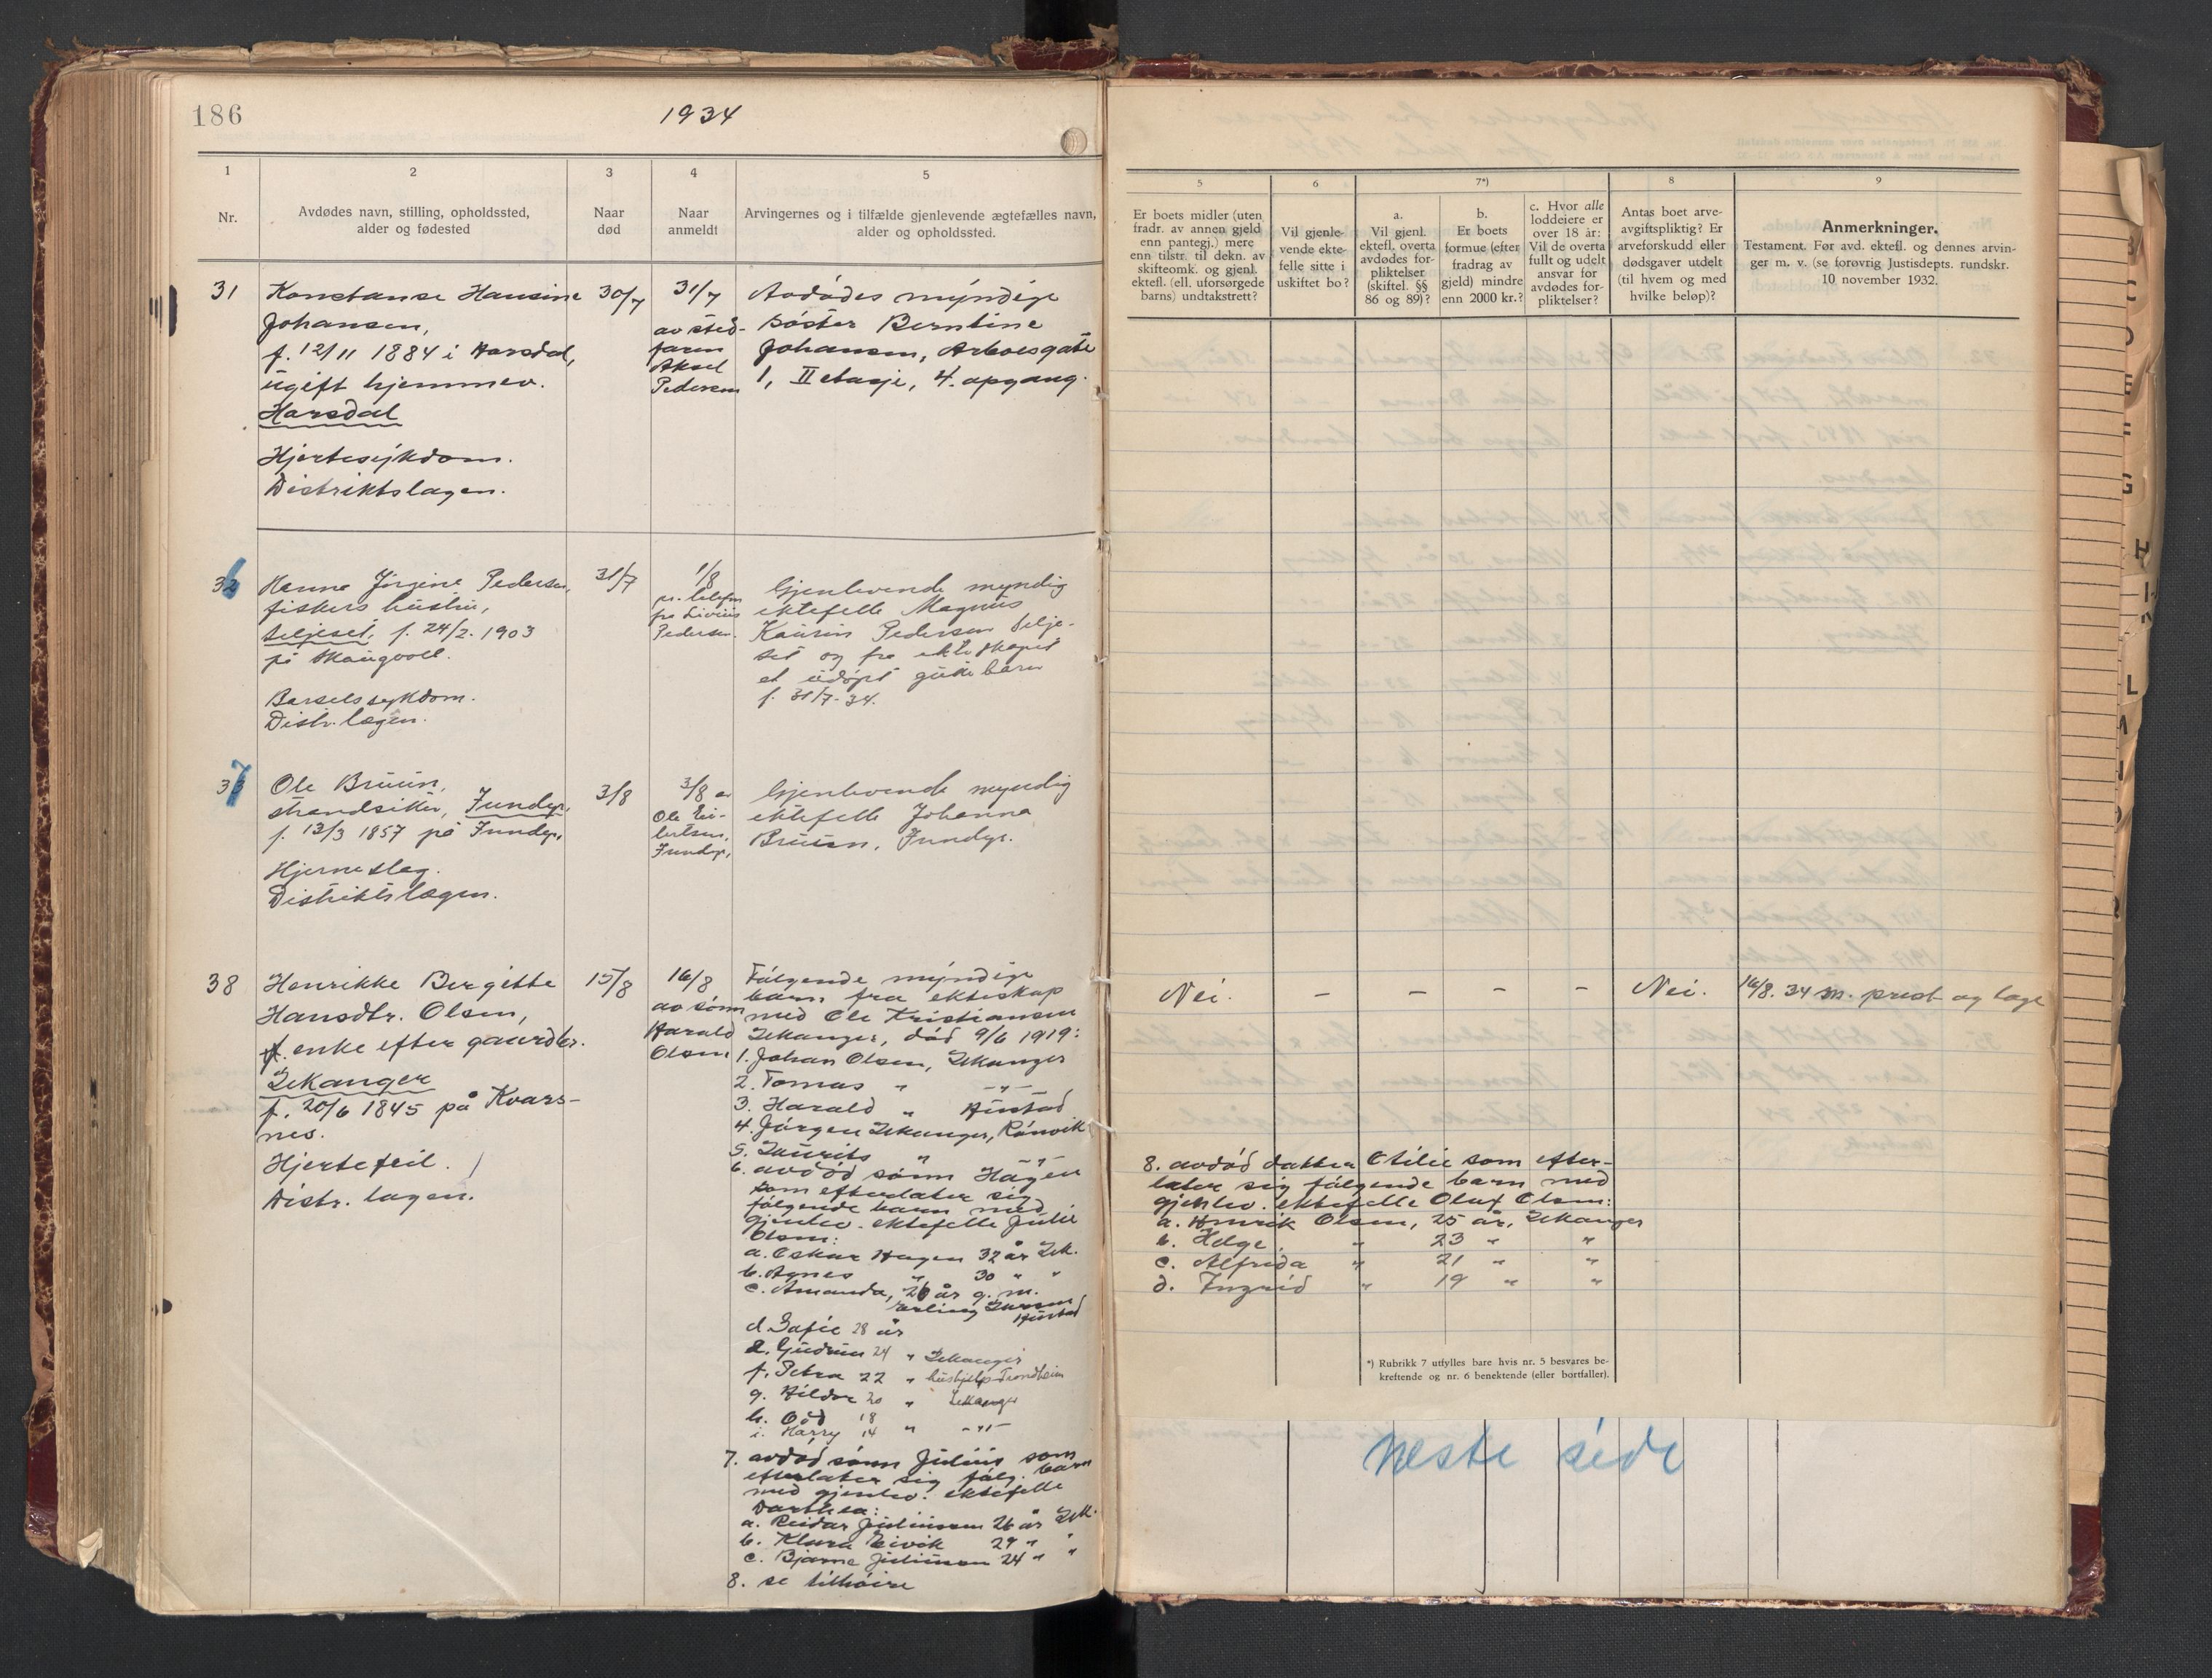 186
1934
1
2
3
4
5
Nr.
Avdødes navn, stilling, opholdssted,
alder og fødested
Naar
død
Naar
anmeldt
Arvingernes og i tilfælde gjenlevende ægtefælles navn,
alder og opholdssted.
31
Konstanse Hansine
Johansen,
f. 12/11 1884 i Harsdal,
ugift hjemmev.
Harsdal
Hjertesykdom.
Distriktslægen.
30/7
31/7
av sted-
faren
Aksel
Pedersen
Avdødes myndige
søster Berntine
Johansen, Arboesgate
1, II etasje, 4. opgang.
Hanna Jørgine Pedersen,
fiskers hustru,
Seljeset, f. 24/2. 1903
på Skaugvoll.
Barselssykdom.
Distr.lægen.
31/7
1/8
pr. telefon
fra Livius
Pedersen.
Gjenlevende myndig
ektefelle Magnus
Kaurin Pedersen Selje-
set og fra ekteskapet
et udøpt guttebarn
f. 31/7-34.
Ole Bruun,
strandsitter,
f. 13/3 1857 på
Hjerneslag.
Distriktslægen.
3/8
3/8 av
Ole
Gjenlevende myndig
ektefelle Johanna
Bruun,
38
Henrikke Bergitte
Hansdtr. Olsen,
enke efter gaardbr.
Lekanger
f. 20/6 1845 på Kvars-
nes.
Hjertefeil.
Distr. lægen.
15/8
16/8
av sønn
Harald
Olsen
Følgende myndige
barn fra ekteskap
med Ole Kristiansen
Lekanger, død 9/6 1919:
1. Johan Olsen, Lekanger
2. Tomas " -"-
3. Harald "
4. Jørgen Lekanger, Rønvik
5. Laurits " -"-
6. avdød sønn Hagen
som efterlater sig
følgende barn med
gjenlev. ektefelle Julie
Olsen:
a. Oskar Hagen 32 år Lek.
b. Agnes " 30 " "
c. Amanda, 26 år g. m.
Erling
d. 28 år
e. Gudrun 24 " Lekanger
f. Petra 22 " hushjelp Trondheim
g. Hildor 20 " Lekanger
h. Odd 18
i. Harry 14 " -"-
7. avdød sønn Julius som
efterlater sig følg. barn
med gjenlev. ektefelle
Darthea:
a. Reidar Juliussen 26 år Lek.
b. Klara Eivik "
c. Bjarne Juliussen 24 " "
8. se tilhøire
5
6
7*)
8
9
Er boets midler (uten
fradr. av annen gjeld
enn pantegj.) mere
enn tilstr. til dekn. av
skifteomk. og gjenl.
ektefl. (ell. uforsørgede
barns) undtakstrett?
Vil gjenle-
vende ekte-
felle sitte i
uskiftet bo?
a.
Vil gjenl.
ektefl. overta
avdødes for-
pliktelser
(skiftel. §§
86 og 89)?
b.
Er boets
formue (efter
fradrag av
gjeld) mindre
enn 2000 kr.?
c. Hvor alle
loddeiere er
over 18 år:
Vil de overta
fullt og udelt
ansvar for
avdødes for-
pliktelser?
Antas boet arve-
avgiftspliktig? Er
arveforskudd eller
dødsgaver utdelt
(til hvem og med
hvilke beløp)?
Anmerkninger.
Testament. Før avd. ektefl. og dennes arvin-
ger m. v. (se forøvrig Justisdepts. rundskr.
10 november 1932.
Nei. - - - - Nei. 16/8. 34 m. prest og læge
8. avdød datter Otilie som efter-
later sig følgende barn med
gjenlev. ektefelle Oluf Olsen:
a. Henrik Olsen, 25 år, Lekanger
b. Helge. " 23 " "
c. Alfrida " 21 " "
d. Ingrid " 19 " "
*) Rubrikk 7 utfylles bare hvis nr. 5 besvares be-
kreftende og nr. 6 benektende (eller bortfaller).
Neste side
G
H
L